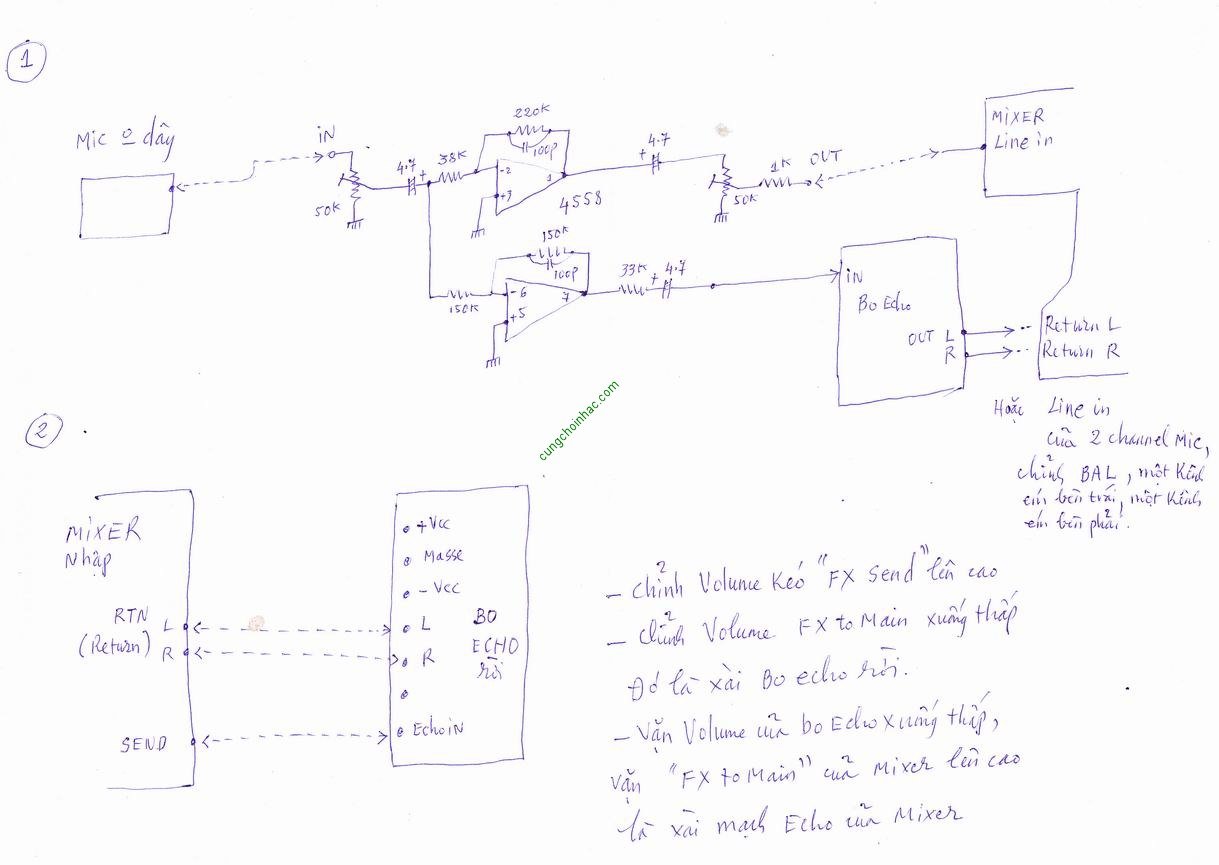 1
Mic o dây
iN
50K
4.7
+
38K
220K
100p
-2
+3
1
4558
+
4.7
50K
1K
OUT
MiXER
Line in
150K
150K
100p
-6
+5
7
33K
+
4.7
iN
Bo Echo
OUT L
R
Return L
Return R
Hoặc Line in
của 2 channel Mic,
chỉnh BAL, một Kênh
êm bên trái, một Kênh
êm bên phải.
cungchoinhac.com
2
MiXER
Nhập
RTN
(Return)
L
R
SEND
+Vcc
Masse
-Vcc
L
R
BO
ECHO
rời
EchoiN
- chỉnh Volume Kéo "FX Send" lên cao
- chỉnh Volume FX to Main xuống thấp
Đó là xài Bo echo rời.
- Vặn Volume của bo Echo xuống thấp,
Vặn "FX to Main" của Mixer lên cao
là xài mạch Echo của Mixer